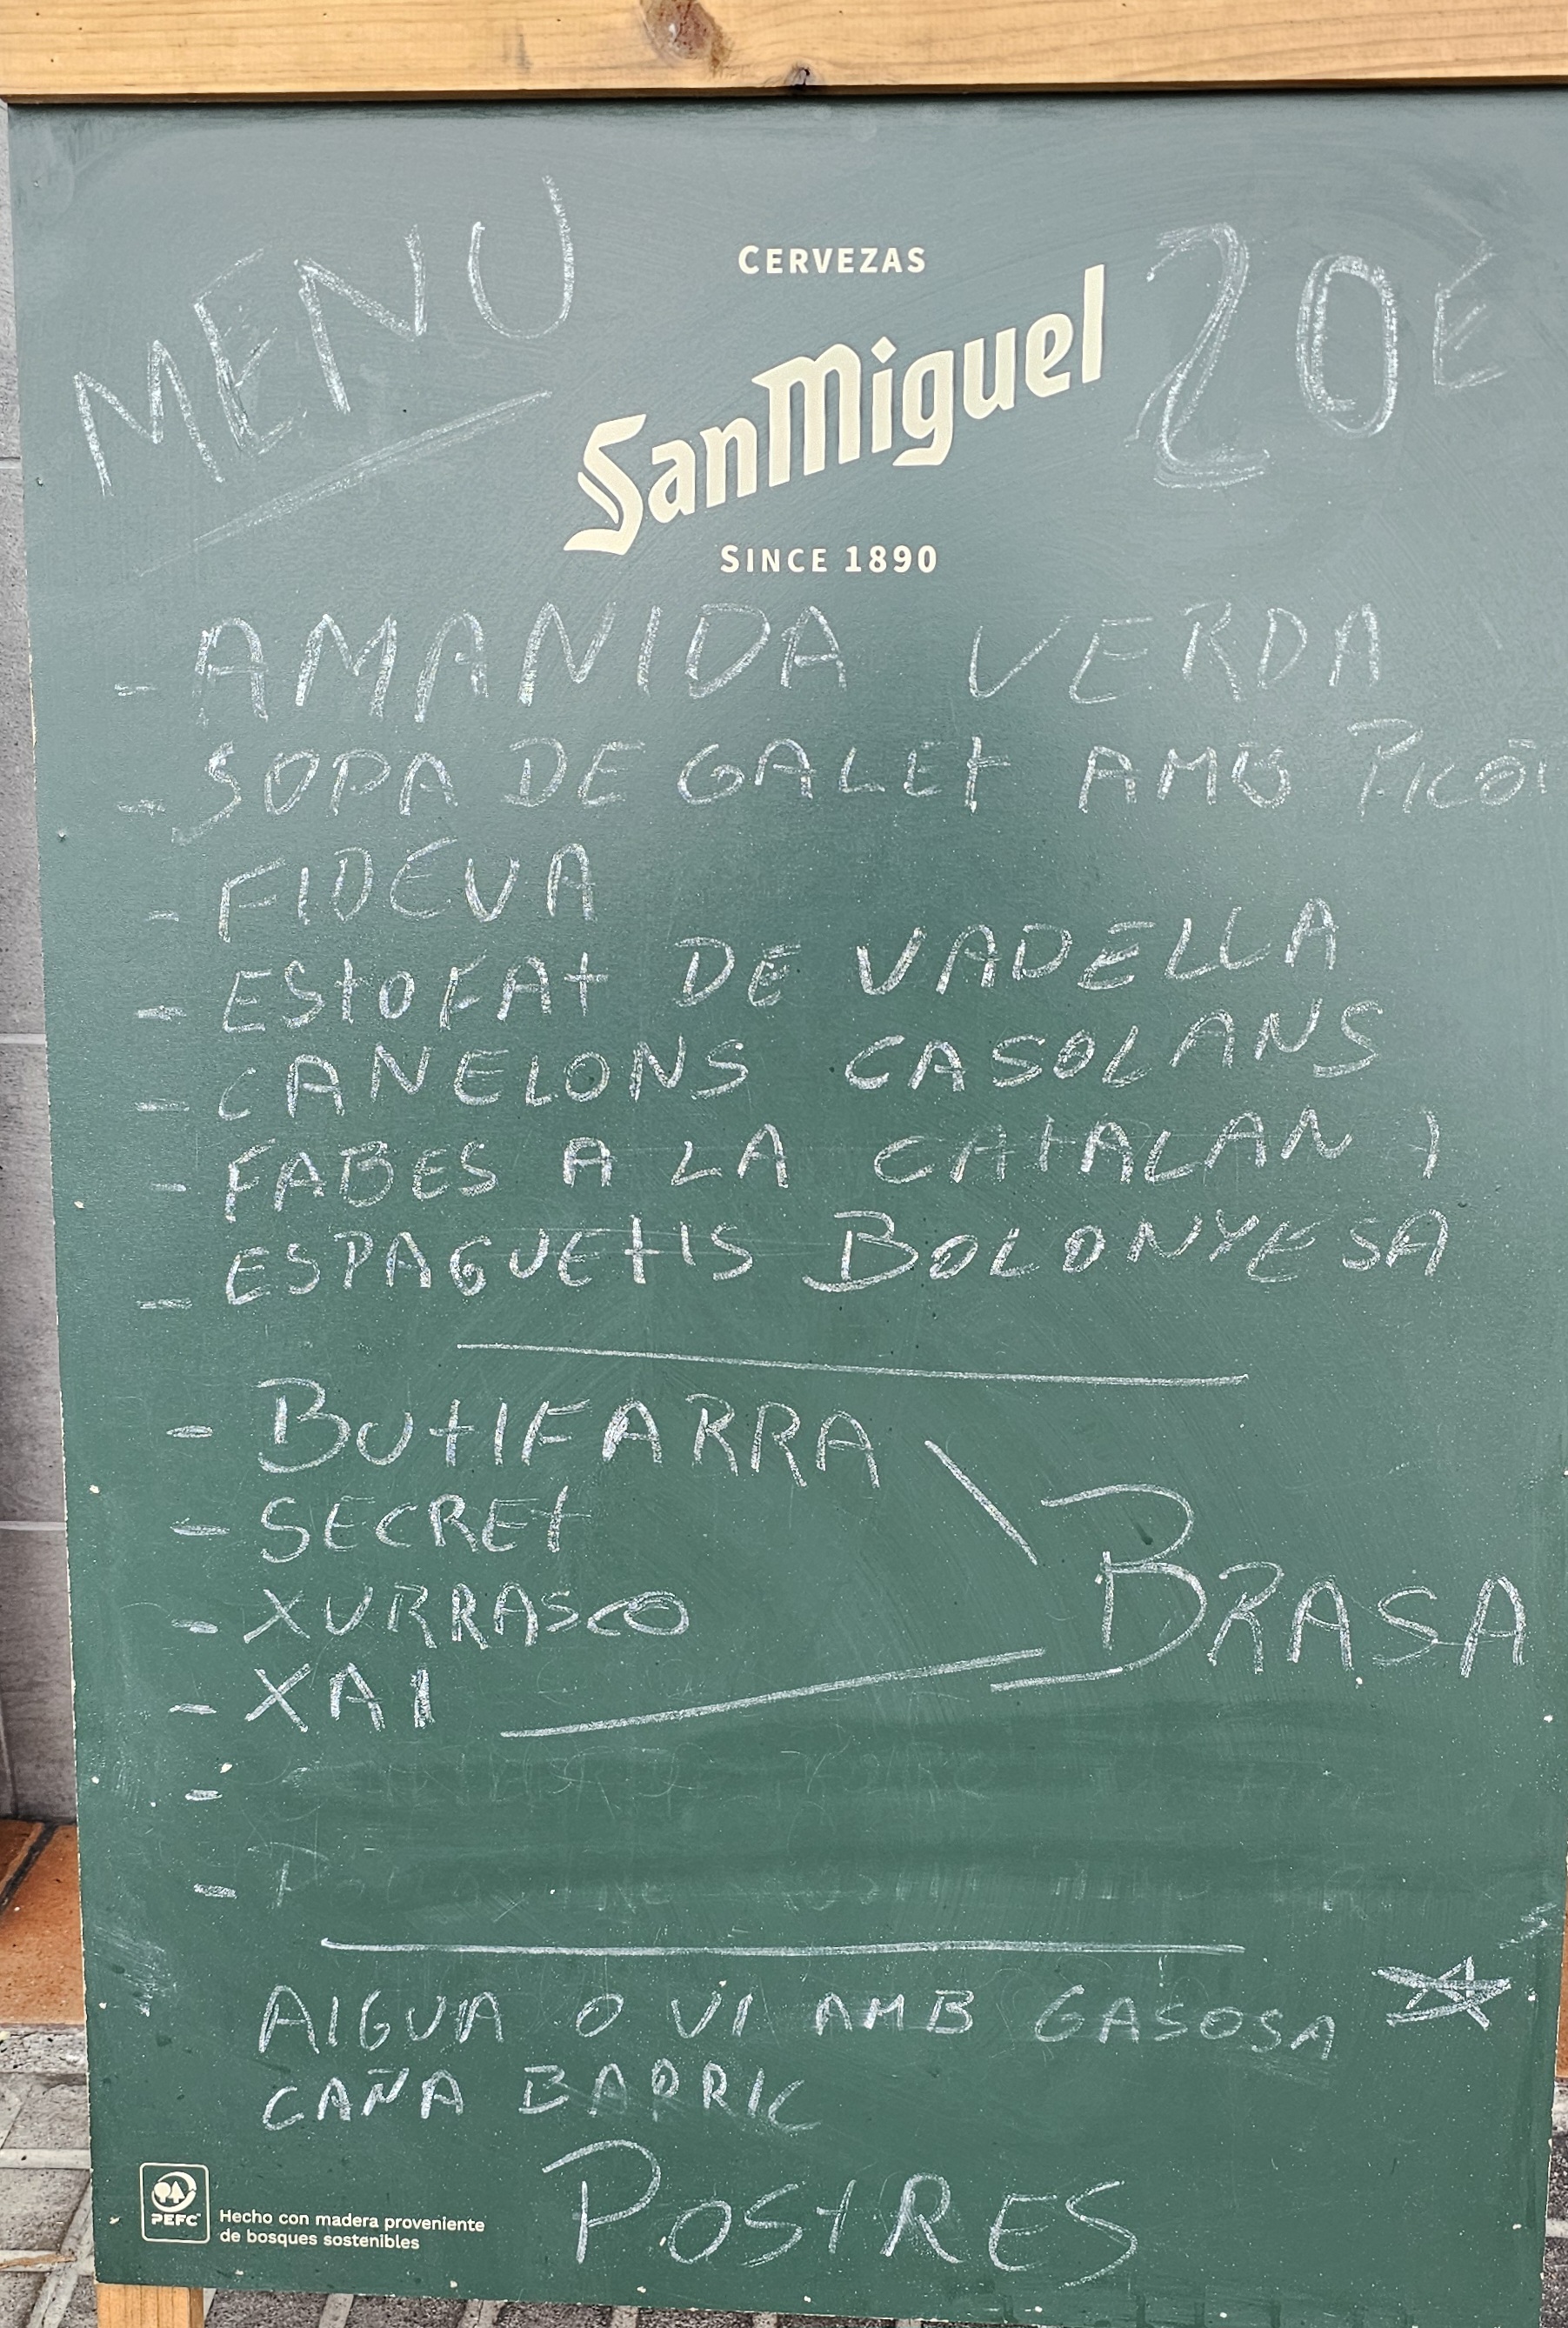 MENU
20€
CERVEZAS
SanMiguel
SINCE 1890
- AMANIDA VERDA
- SOPA DE GALET AMB
- FIDEUA
- ESTOFAT DE VADELLA
- CANELONS CASOLANS
- FABES A LA CATALAN
- ESPAGUETIS BOLONYESA
- BUTIFARRA
- SECRET
- XURRASCO
- XAI
BRASA
-
-
AIGUA O VI AMB GASOSA
CAÑA BARRIL
POSTRES
PEFC
Hecho con madera proveniente
de bosques sostenibles